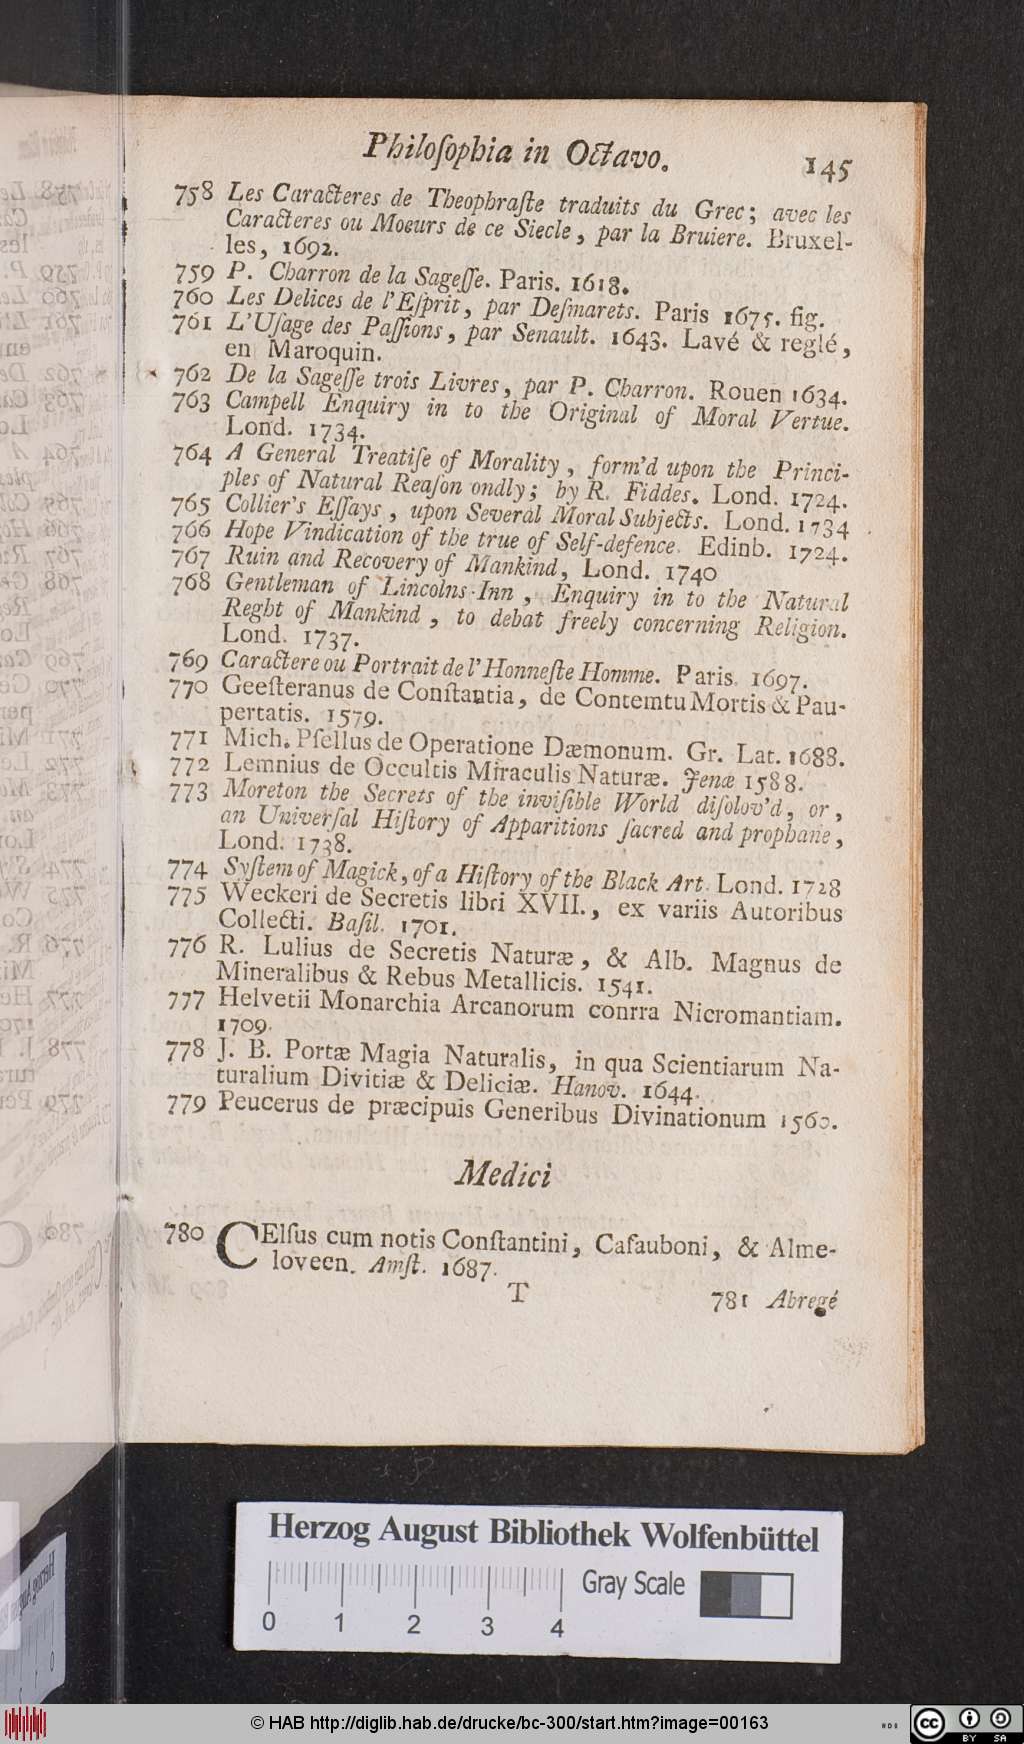 Philoſophia in Octavo. 145
758 Les Caracteres de Theophraſte traduits du Grec; avec les
Caracteres ou Moeurs de ce Siecle, par la Bruiere. Bruxel-
les, 1692.
759 P. Charron de la Sageſſe. Paris. 1618.
760 Les Delices de l'Eſprit, par Deſmarets. Paris 1675. fig.
761 L'Uſage des Paſſions, par Senault. 1643. Lavé & reglé,
en Maroquin.
762 De la Sageſſe trois Livres, par P. Charron. Rouen 1634.
763 Campell Enquiry in to the Original of Moral Vertue.
Lond. 1734.
764 A General Treatiſe of Morality, form'd upon the Princi-
ples of Natural Reaſon ondly; by R. Fiddes. Lond. 1724.
765 Collier's Eſſays, upon Several Moral Subjects. Lond. 1734
766 Hope Vindication of the true of Self-defence. Edinb. 1724.
767 Ruin and Recovery of Mankind, Lond. 1740
768 Gentleman of Lincolns-Inn, Enquiry in to the Natural
Reght of Mankind, to debat freely concerning Religion.
Lond. 1737.
769 Caractere ou Portrait de l'Honneſte Homme. Paris. 1697.
770 Geeſteranus de Conſtantia, de Contemtu Mortis & Pau-
pertatis. 1579.
771 Mich. Pſellus de Operatione Dæmonum. Gr. Lat. 1688.
772 Lemnius de Occultis Miraculis Naturæ. Jenæ 1588.
773 Moreton the Secrets of the inviſible World diſolov'd, or,
an Univerſal Hiſtory of Apparitions ſacred and prophane,
Lond. 1738.
774 Syſtem of Magick, of a Hiſtory of the Black Art. Lond. 1728
775 Weckeri de Secretis libri XVII., ex variis Autoribus
Collecti. Baſil. 1701.
776 R. Lulius de Secretis Naturæ, & Alb. Magnus de
Mineralibus & Rebus Metallicis. 1541.
777 Helvetii Monarchia Arcanorum conrra Nicromantiam.
1709.
778 J. B. Portæ Magia Naturalis, in qua Scientiarum Na-
turalium Divitiæ & Deliciæ. Hanov. 1644.
779 Peucerus de præcipuis Generibus Divinationum 1560.
Medici
780 CElſus cum notis Conſtantini, Caſauboni, & Alme-
loveen. Amſt. 1687.
T 781 Abregé
Herzog August Bibliothek Wolfenbüttel
Gray Scale
0 1 2 3 4
© HAB http://diglib.hab.de/drucke/bc-300/start.htm?image=00163
cc BY SA